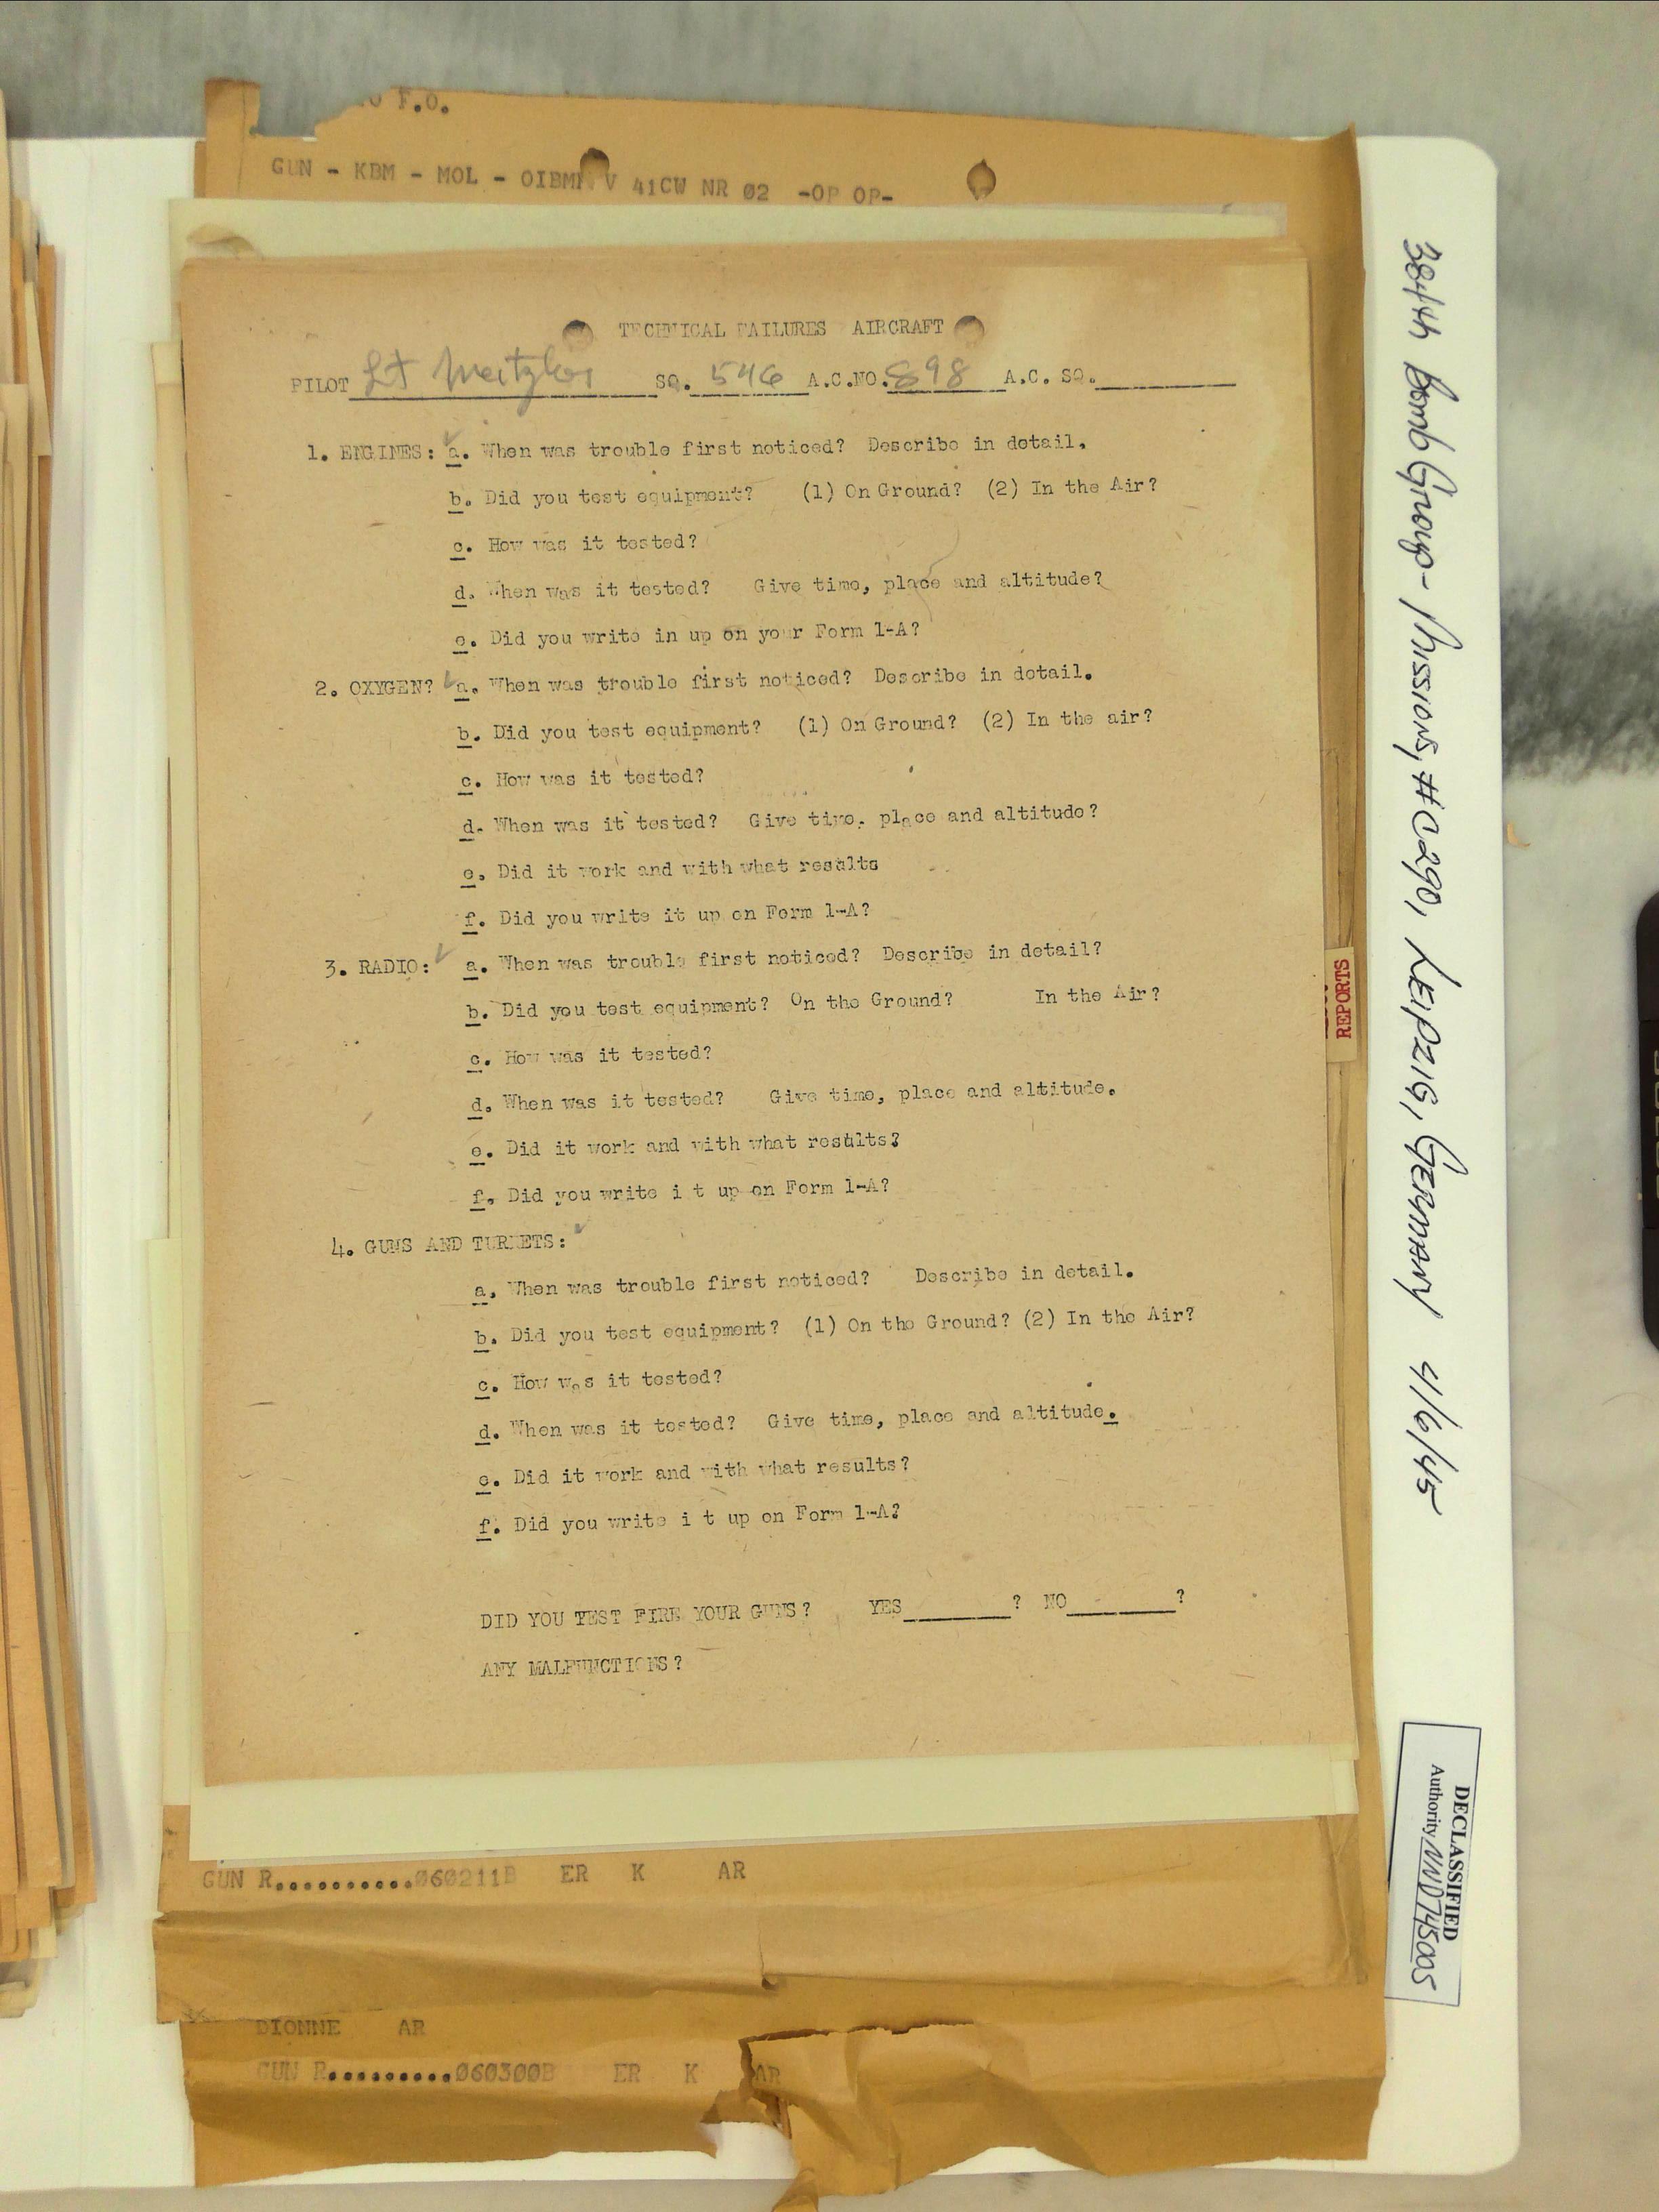 F.O.
GUN - KBM - MOL - OIBMR V 41CW NR 02 -OP OP-
TECHNICAL FAILURES AIRCRAFT
PILOT Lt SQ. 546 A.C.NO. 898 A.C. SQ.
1. ENGINES: a. When was trouble first noticed? Describe in detail.
b. Did you test equipment? (1) On Ground? (2) In the Air?
c. How was it tested?
d. When was it tested? Give time, place and altitude?
e. Did you write in up on your Form 1-A?
2. OXYGEN? a. When was trouble first noticed? Describe in detail.
b. Did you test equipment? (1) On Ground? (2) In the air?
c. How was it tested?
d. When was it tested? Give time. place and altitude?
e. Did it work and with what results
f. Did you write it up on Form 1-A?
3. RADIO: a. When was trouble first noticed? Describe in detail?
b. Did you test equipment? On the Ground? In the Air?
c. How was it tested?
d. When was it tested? Give time, place and altitude.
e. Did it work and with what results?
f. Did you write i t up on Form 1-A?
4. GUNS AND TURRETS:
a. When was trouble first noticed? Describe in detail.
b. Did you test equipment? (1) On the Ground? (2) In the Air?
c. How was it tested?
d. When was it tested? Give time, place and altitude.
e. Did it work and with what results?
f. Did you write i t up on Form 1-A?
DID YOU TEST FIRE YOUR GUNS? YES ? NO ?
ANY MALFUNCTIONS?
GUN R..........060211B ER K AR
DIONNE AR
GUN R.........060300B ER K AR
REPORTS
384th Bomb Group - Mission #C290, LEIPZIG, GERMANY 4/6/45
DECLASSIFIED
Authority NND745005